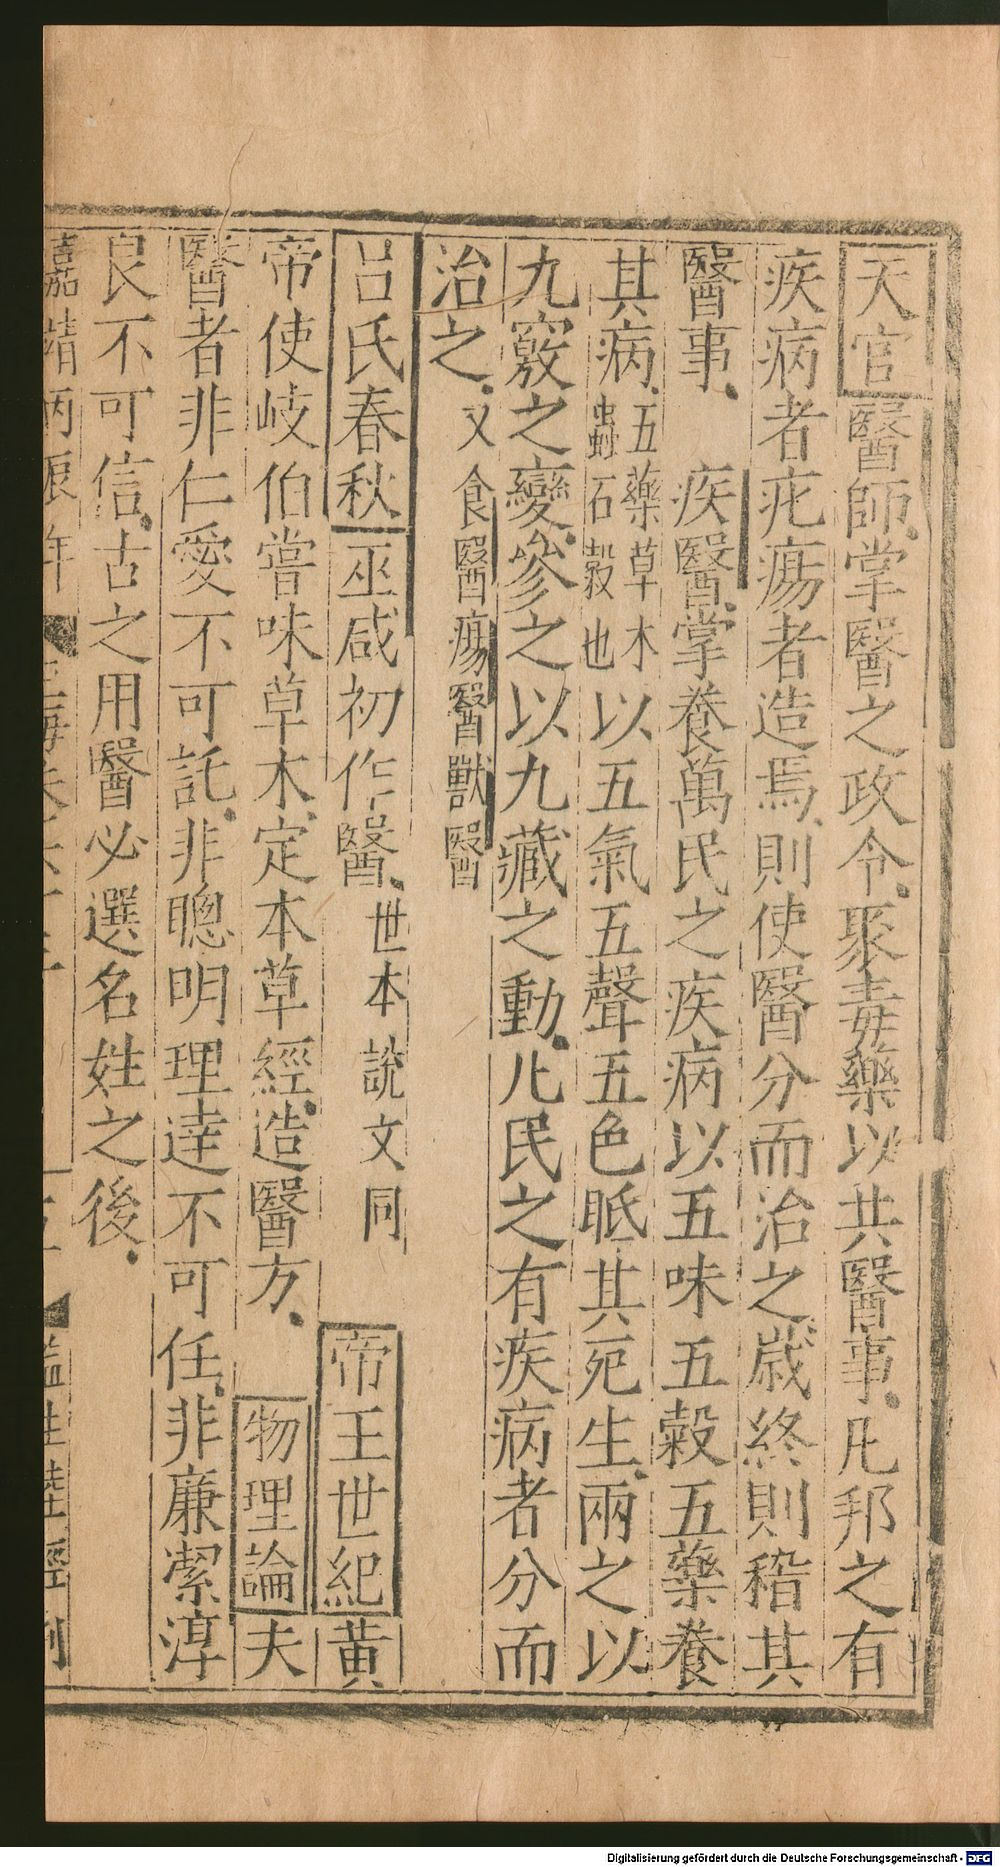 天官醫師掌醫之政令聚毒藥以共醫事凡邦之有
疾病者疕瘍者造焉則使醫分而治之歲終則稽其
醫事疾醫掌養萬民之疾病以五味五穀五藥養
其病五藥草木蟲石穀也以五氣五聲五色眡其死生兩之以
九竅之變參之以九藏之動凡民之有疾病者分而
治之又食醫瘍醫獸醫
呂氏春秋巫咸初作醫世本說文同帝王世紀黃
帝使岐伯嘗味草木定本草經造醫方物理論夫
醫者非仁愛不可託非聰明理達不可任非廉潔淳
良不可信古之用醫必選名姓之後
嘉靖丙辰年
Digitalisierung gefördert durch die Deutsche Forschungsgemeinschaft - DFG